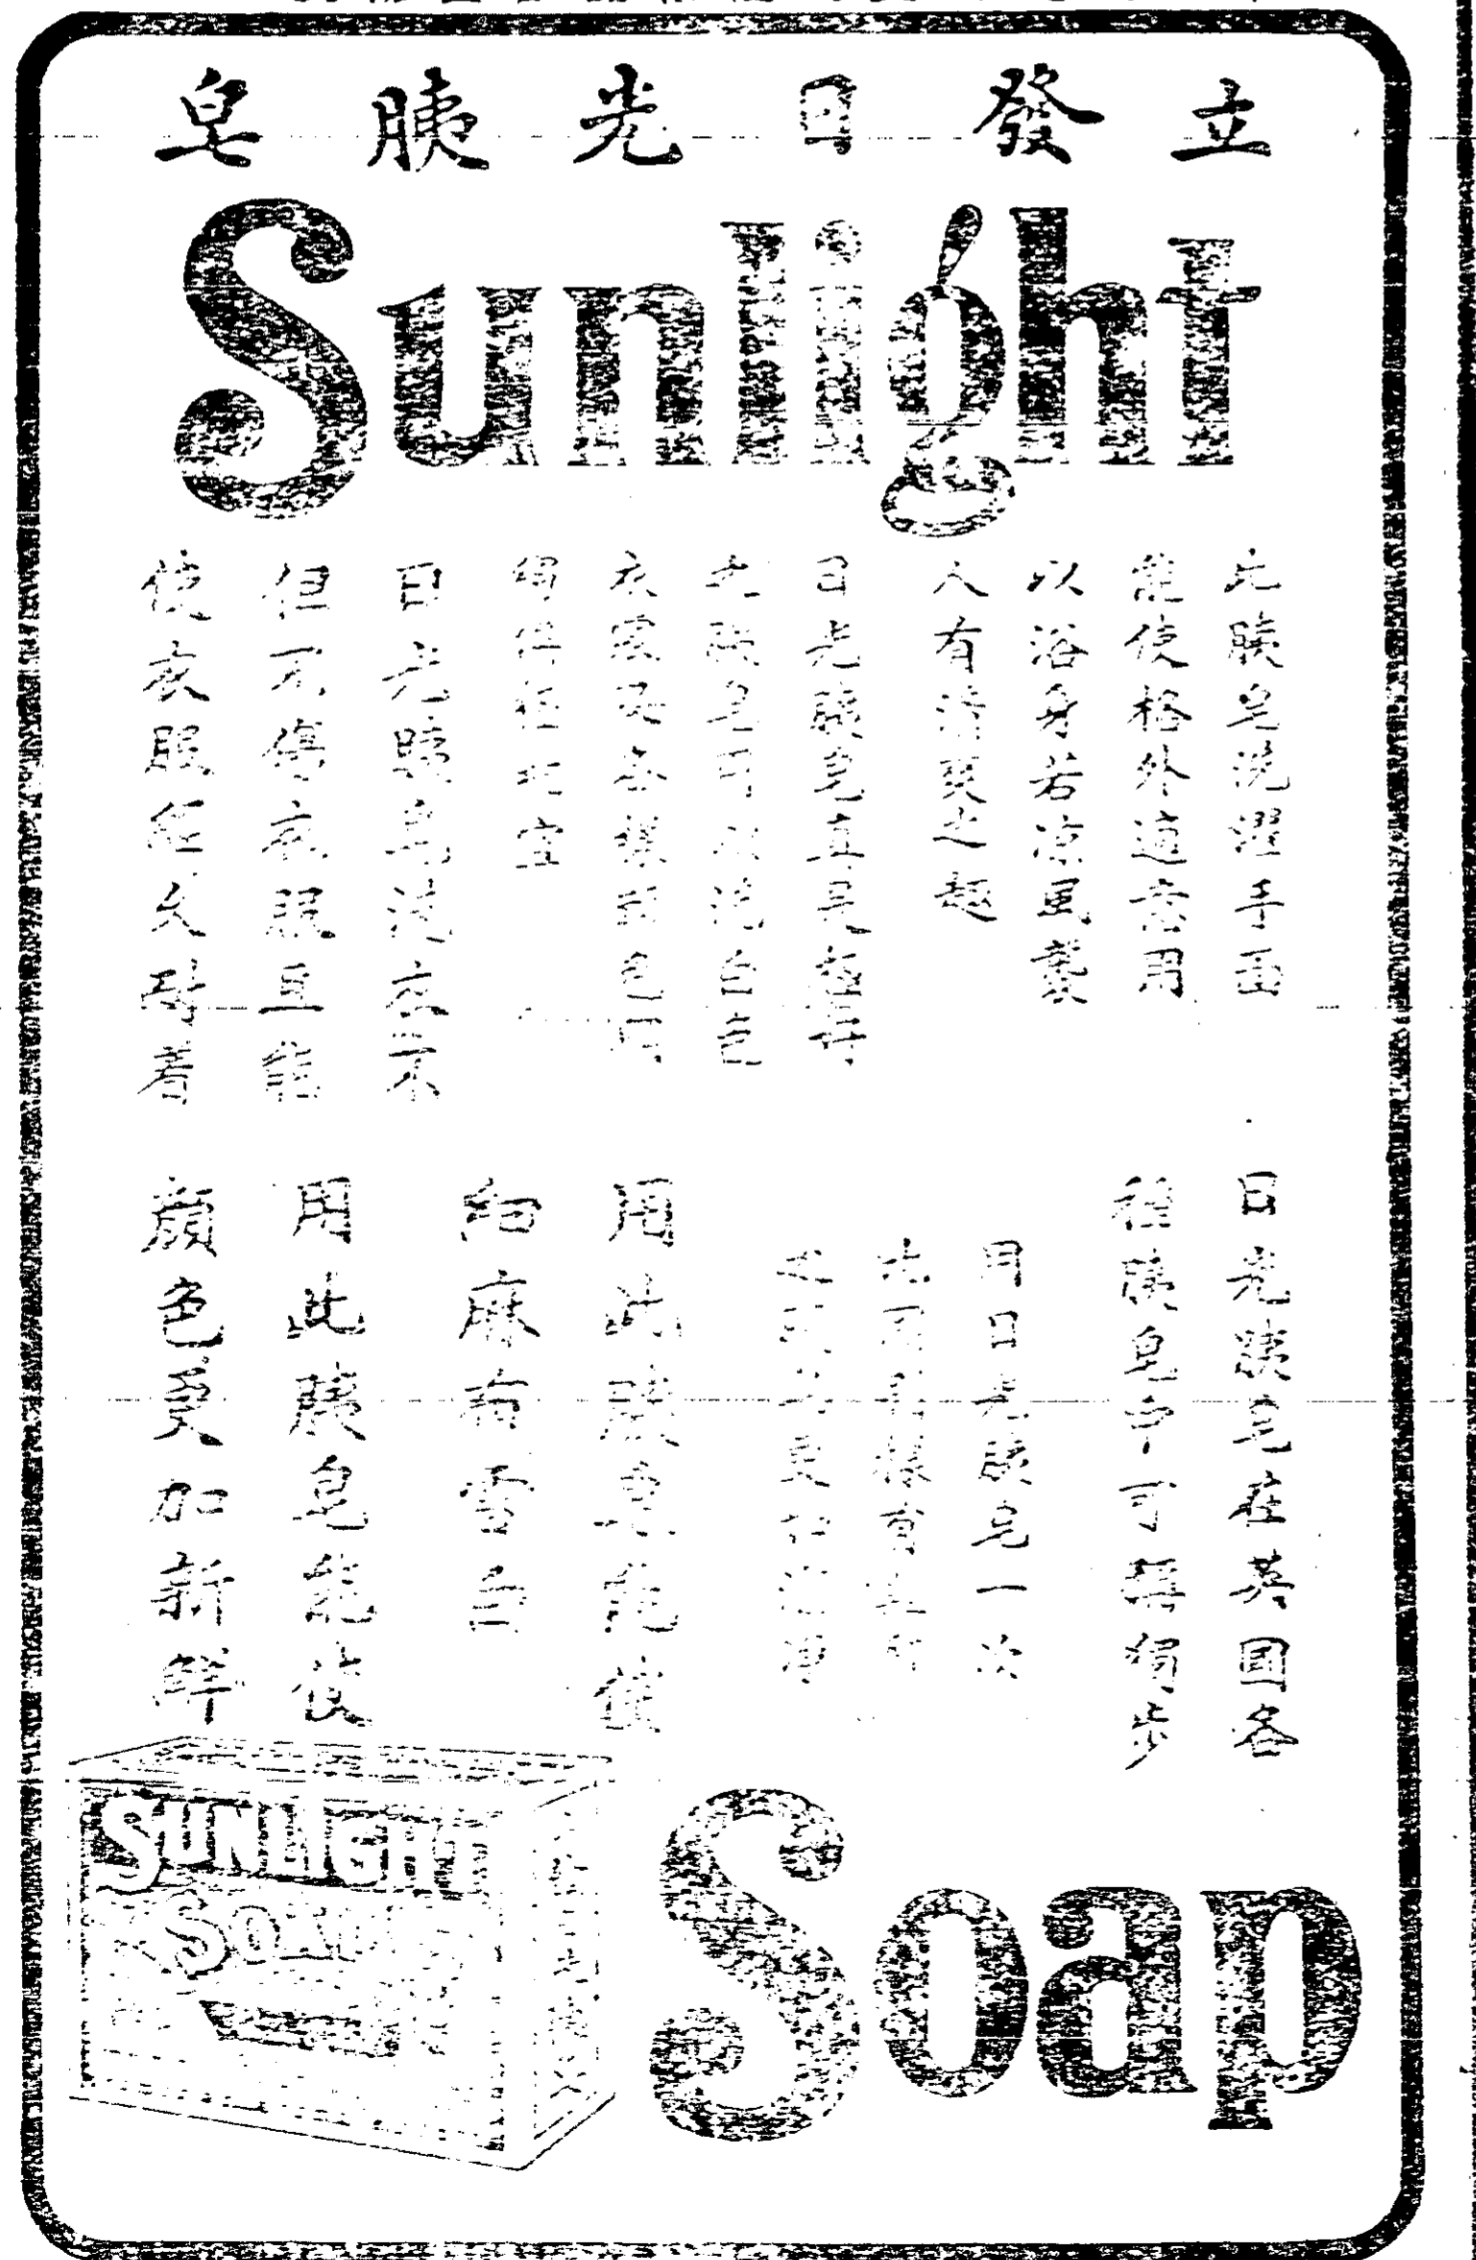 立發日光胰皂
Sunlight
此胰皂洗濯手面
能使格外適意用
以浴身若涼風襲
人有清爽之趣
日光胰皂且是
光胰皂可以洗白色
衣裳及各樣顏色
日光胰皂洗衣不
但不傷衣服且能
使衣服經久耐着
日光胰皂在英國各
種胰皂中可稱獨步
用日光胰皂一次
用此胰皂能使
細麻布雪白
用此胰皂能使
顏色更加新鮮
SUNLIGHT
SOAP
Soap